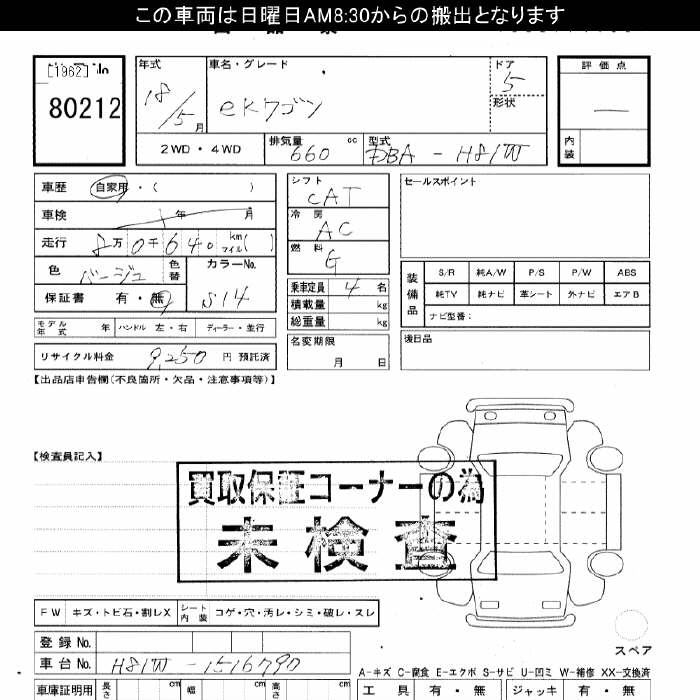 この車両は日曜日AM8:30からの搬出となります
[1962] No
80212
年式 車名・グレード ドア 評価点
18/5月 eKワゴン 5
形状
2WD・4WD 排気量 660 cc 型式 DBA - H81W 内装
車歴 自家用・( ) シフト CAT セールスポイント
車検 年 月 冷房 AC
走行 8万0千640 km マイル ( ) 燃料 G
色 ベージュ 色替 カラーNo. S14
装備品 S/R 純A/W P/S P/W ABS
純TV 純ナビ 革シート 外ナビ エアB
ナビ型番:
保証書 有・無 乗車定員 4 名
積載量 kg
総重量 kg
モデル年式 年 ハンドル 左・右 ディーラー・並行
名変期限 月 日
後日品
リサイクル料金 9,250 円 預託済
【出品店申告欄(不良箇所・欠品・注意事項等)】
【検査員記入】
買取保証コーナーの為
未検査
FW キズ・トビ石・割レX シート内装 コゲ・穴・汚レ・シミ・破レ・スレ
スペア
登録 No.
車台 No. H81W - 1516790
A-キズ C-腐食 E-エクボ S-サビ U-凹ミ W-補修 XX-交換済
車庫証明用 長さ cm 幅 cm 高さ cm 工具 有・無 ジャッキ 有・無